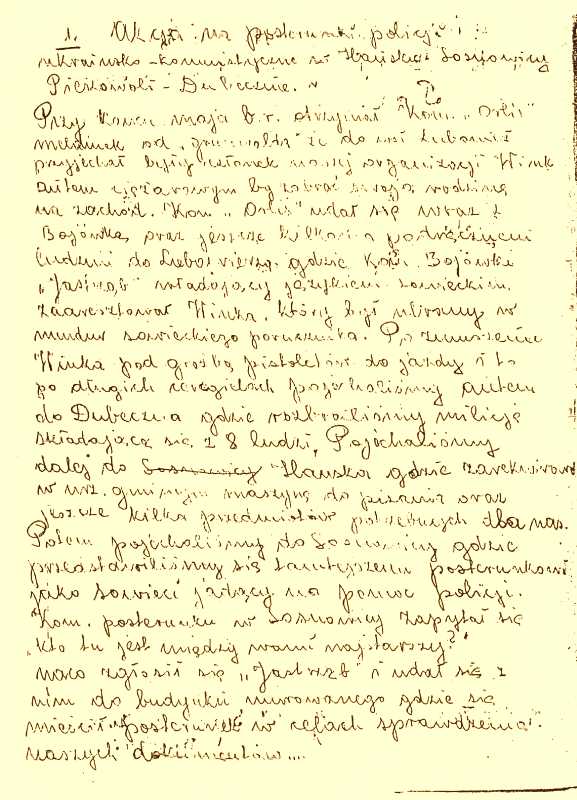 1. Akcja na posterunki policji
ukraińsko-komunistyczne w Hańsku Sosnowicy
Pieszowoli - Dubecznie.
Przy końcu maja b.r. otrzymał Kom. "Orlis"
meldunek od "Grunwalda" że do wsi Lubowierz
przyjechał były członek naszej organizacji Wink
autem ciężarowym by zabrać swoją rodzinę
na zachód. Kom. "Orlis" udał się wraz z
Bojówką oraz jeszcze kilkoma podręcznymi
ludźmi do Lubowierza gdzie Kom. Bojówki
"Jastrząb" władający językiem sowieckim
zaaresztował Winka, który był ubrany w
mundur sowieckiego porucznika. Po zmuszeniu
Winka pod groźbą pistoletów do jazdy i to
po długich ceregielach pojechaliśmy autem
do Dubeczna gdzie rozbroiliśmy milicję
składającą się z 8 ludzi. Pojechaliśmy
dalej do Sosnowicy Hańska gdzie zarekwirow
w urz. gminnym maszynę do pisania oraz
jeszcze kilka przedmiotów potrzebnych dla nas.
Potem pojechaliśmy do Sosnowicy gdzie
przedstawiliśmy się tamtejszemu posterunkowi
jako sowieci jadący na pomoc policji.
Kom. posterunku w Sosnowicy zapytał się
"kto tu jest między wami najstarszy?"
na co zgłosił się "Jastrząb" i udał się z
nim do budynku murowanego gdzie się
mieścił posterunek w celach sprawdzenia
naszych dokumentów....